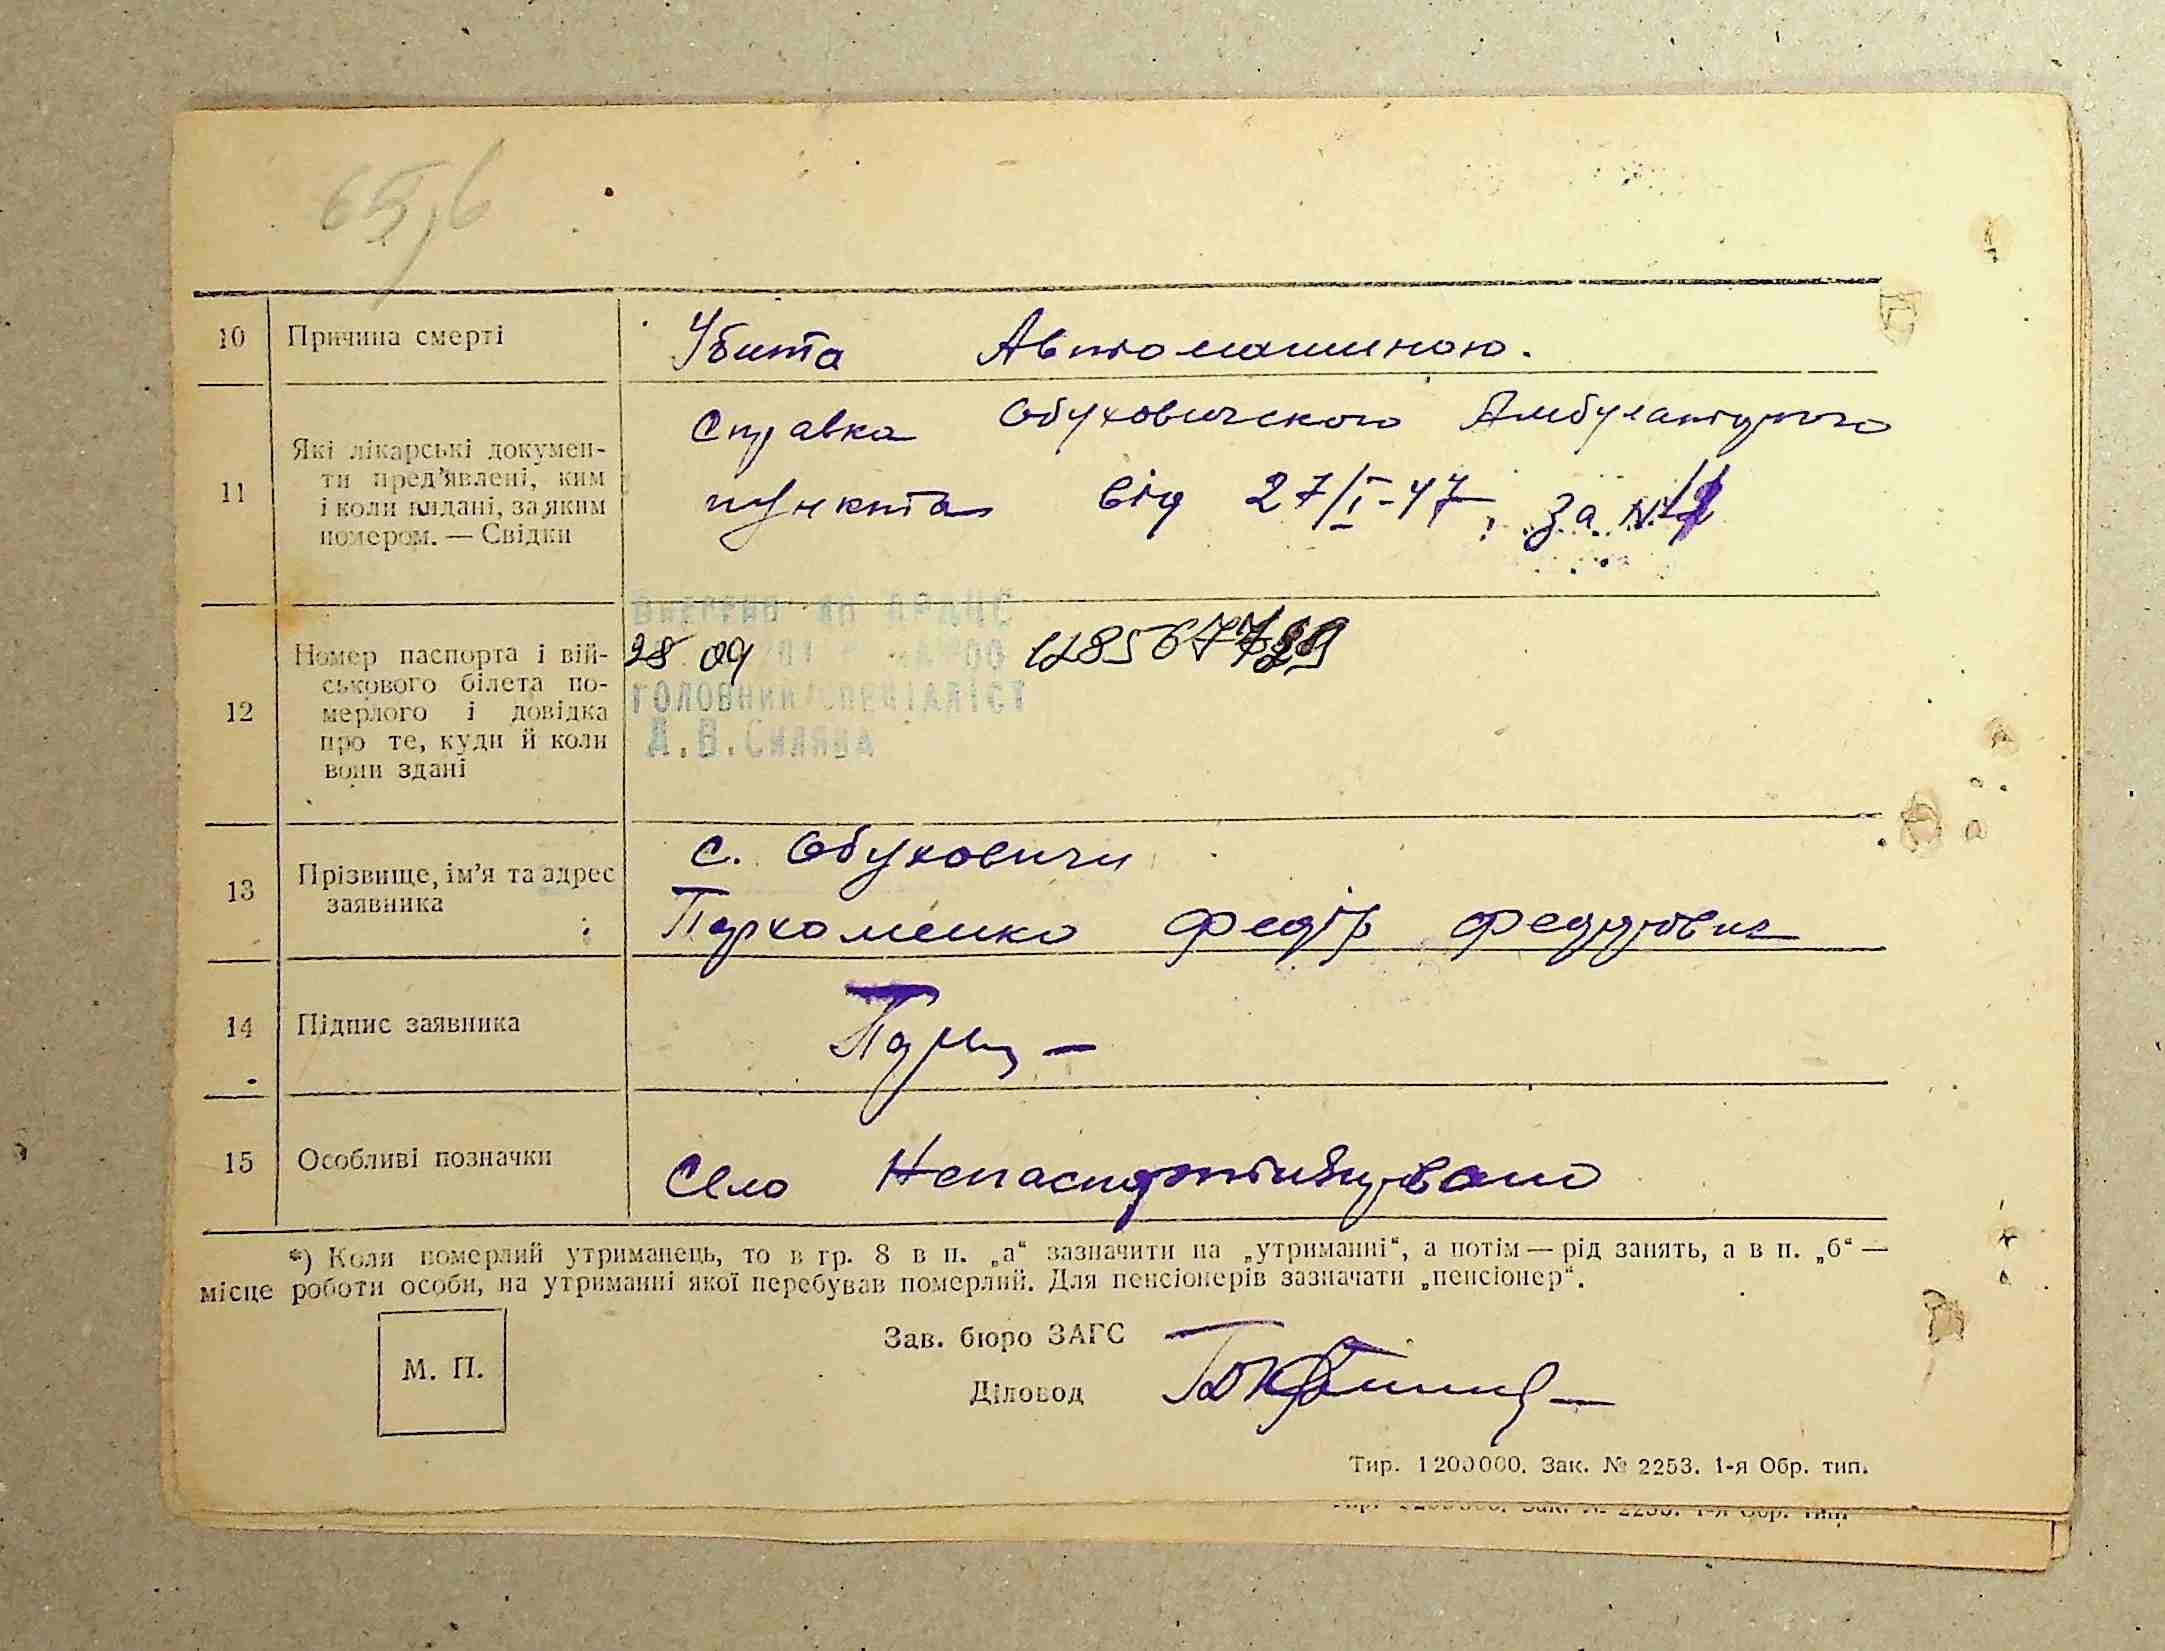 65,6
10 Причина смерті Убита Автомашиною.
11 Які лікарські докумен-
ти пред'явлені, ким
і коли видані, за яким
номером. — Свідки
Справка Обуховичского Амбулаторного
пункта від 27/I-47, за №
12 Номер паспорта і вій-
ськового білета по-
мерлого і довідка
про те, куди й коли
вони здані
ВНЕСЕНО ДО ДРАЦС
28 09
ГОЛОВНИЙ СПЕЦІАЛІСТ
13 Прізвище, ім'я та адрес
заявника
с. Обуховичи
Пархоменко Федір Федорович
14 Підпис заявника
15 Особливі позначки Село Непаспортизувано
*) Коли померлий утриманець, то в гр. 8 в п. „а“ зазначити на „утриманні“, а потім — рід занять, а в п. „б“ —
місце роботи особи, на утриманні якої перебував померлий. Для пенсіонерів зазначати „пенсіонер“.
М. П.
Зав. бюро ЗАГС
Діловод
Тир. 1200000. Зак. № 2253. 1-я Обр. тип.